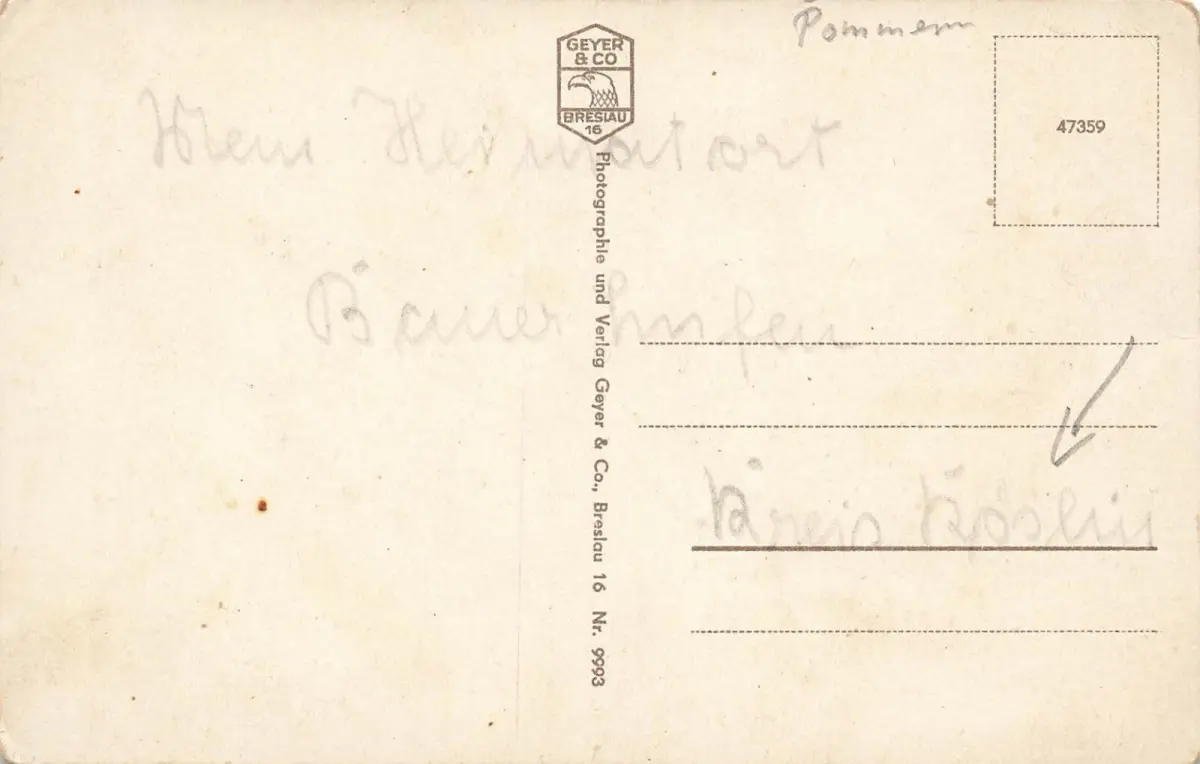 Pommern
GEYER
& CO
BRESLAU
16
47359
Heimatort
Bauerhufen
Photographie und Verlag Geyer & Co., Breslau 16 Nr. 9993
Kreis Köslin